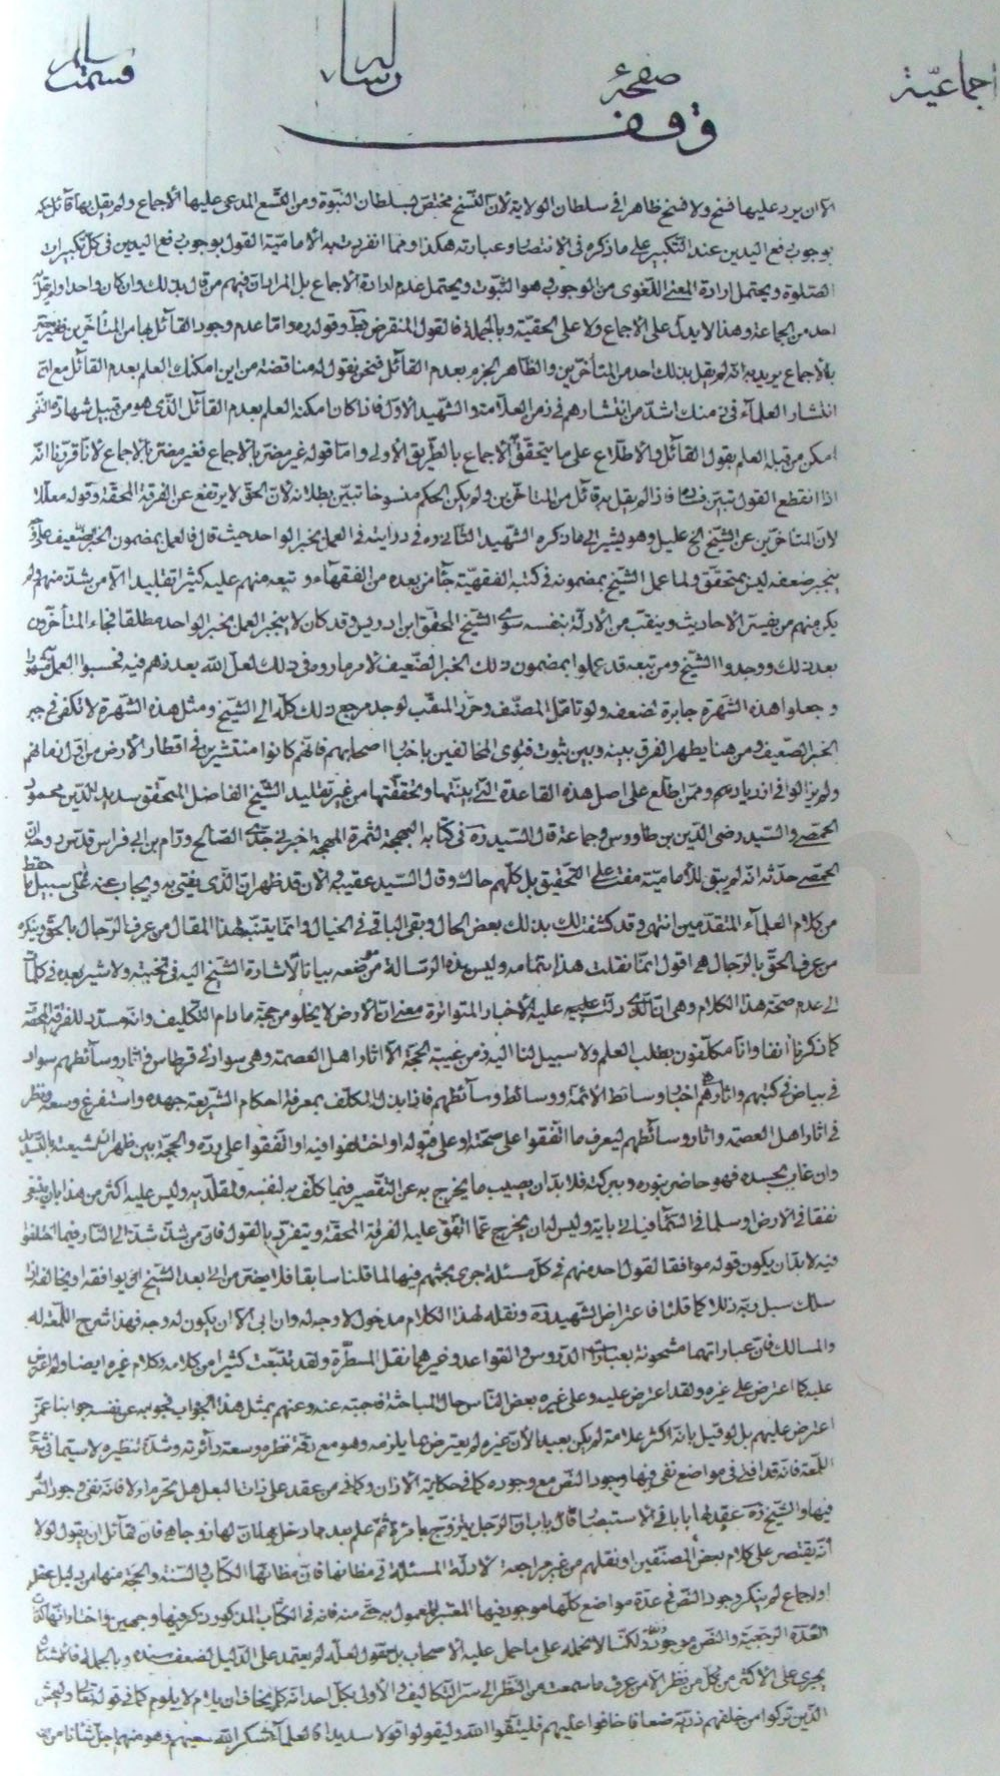 اجماعيّة صفحهٔ رساله قسمت
وقف
الا ان يرد عليها فسخ ولا فسخ ظاهر في سلطان الولاية لأن النسخ مختص بسلطان النبوة ومن التسع المدعى عليها الاجماع ولم يقل بها قائل
بوجوب رفع اليدين عند التكبير على ما ذكره في الانتصار وعبارته هكذا ومما انفردت به الامامية القول بوجوب رفع اليدين في كل تكبيرات
الصلوة ويحتمل ارادة المعنى اللغوى من الوجوب هو الثبوت ويحتمل عدم ارادة الاجماع بل المراد ان فيهم من قال بذلك وان كان واحدا ولم يقل
احد من الجماعة وهذا لا يدل على الاجماع ولا على الحقيّة وبالجملة فالقول المنقرض وقوله ره واما عدم وجود القائل بها من المتأخرين
بالاجماع يريد به انه لم يقل بذلك احد من المتأخرين والظاهر الجزم بعدم القائل فنحن نقول له مناقضة من اين امكنك العلم بعدم القائل مع
انتشار العلمآء في زمنك اشد من انتشارهم في زمن العلامة والشهيد الاول فاذا كان امكنه العلم بعدم القائل الذى هو من قبيل شهادة النفى
امكن من قبله العلم بقول القائل والاطلاع على ما يتحقق الاجماع بالطريق الاولى واما قوله غير مضر بالاجماع فغير مضر بالاجماع لانا قررنا انه
اذا انقطع القول تبين فساده فاذا لم يقل به قائل من المتأخرين ولم يكن الحكم منسوخا تبين بطلانه لان الحق لا يرتفع عن الفرقة المحقة وقوله معللا
لان المتأخرين عن الشيخ الخ عليل وهو يشير الى ما ذكره الشهيد الثانى ره في درايته في العمل بخبر الواحد حيث قال فالعمل بمضمون الخبر الضعيف
ينجبر ضعفه ليس بمتحقق ولما عمل الشيخ بمضمونه في كتبه الفقهية جآء من بعده من الفقهآء وتبعه منهم عليه كثير تقليدا الا من شذ منهم ولم
يكن منهم من يفسر الاحاديث وينقب من الادلة بنفسه سوى الشيخ المحقق ابن ادريس وقد كان لا يجيز العمل بخبر الواحد مطلقا فجاء المتأخرون
بعد ذلك ووجدوا الشيخ ومن تبعه قد عملوا بمضمون ذلك الخبر الضعيف لامر ما راوه في ذلك لعل الله يعذرهم فيه فحسبوا العمل
وجعلوا هذه الشهرة جابرة لضعفه ولو تأمل المصنف وحرر المنقب لوجد مرجع ذلك كله الى الشيخ ومثل هذه الشهرة لا تكفى في جبر
الخبر الضعيف ومن هنا يظهر الفرق بينه وبين ثبوت فتوى المخالفين باخبار اصحابهم فانهم كانوا منتشرين في اقطار الارض من اول زمانهم
ولم يزالوا في ازدياد وممن اطلع على اصل هذه القاعدة التى بينتها وتحققتها من غير تقليد الشيخ الفاضل المتحقق سديد الدين محمود
الحمصى والسيد رضى الدين بن طاووس وجماعة قال السيد ره في كتابه البهجة لثمرة المهجة اخبرنى جدى الصالح ورام بن ابى فراس قدس روحه ان
الحمصى حدثه انه لم يبق للامامية مفت على التحقيق بل كلهم حاك وقال السيد عقيبه والان قد ظهر ان الذى يفتى به ويجاب عنه على سبيل ما حفظ
من كلام العلمآء المتقدمين انتهى وقد كشفت لك بذلك بعض الحال وبقى الباقى في الخيال وانما يتنبه لهذا المقال من عرف الرجال بالحق وينكره
من عرف الحق بالرجال اقول انما نقلت هذا بتمامه وليس هذه الرسالة موضعه بيانا لاشارة الشيخ اليه في نجيبته ولاشير بعده في كلمات
الى عدم صحة هذا الكلام وهى ان الذى دلت عليه الاخبار المتواترة معنى ان الارض لا يخلو من حجة ما دام التكليف وانه مسدد للفرقة المحقة
كما ذكرنا انفا وانا مكلفون بطلب العلم ولا سبيل لنا اليه زمن غيبة الحجة الا اثار اهل العصمة وهى سواد في قرطاس واثار وسائطهم سواد
في بياض في كتبهم واثارهم اخبار وسائط الائمة ووسائط وسائطهم فاذا بذل المكلف بمعرفة احكام الشريعة جهده واستفرغ وسعه ونظر
في اثار اهل العصمة واثار وسائطهم ليعرف ما اتفقوا على صحته او على قبوله او اختلفوا فيه او اتفقوا على رده والحجة بين ظهرانى شيعته
وان غاب بجسده فهو حاضر بنوره وببركته فلا بد ان يصيب ما يخرج به عن التقصير فيما كلف به لنفسه ولمقلديه وليس عليه اكثر من هذا بان يبتغى
نفقا في الارض او سلما في السمآء فيأتى باية وليس له ان يخرج عما اتفق عليه الفرقة المحقة ويتفرد بالقول فان من شذ شذ الى النار فيما اختلفوا
فيه لا بد ان يكون قوله موافقا لقول احد منهم في كل مسئلة جرى بحثهم فيها لما قلنا سابقا فلا يضر من اتى بعد الشيخ اى يوافقه او يخالفه اذا
سلك سبل ربه ذللا كما قلنا فاعتراض الشهيد ره ونقله لهذا الكلام مدخول لا وجه له وان ابى الا ان يكون له وجه فهذا شرح اللمعة له
والمسالك فان عباراتهما مشحونة بعبارات الدروس والقواعد وغيرهما نقل المسطرة ولقد تتبعت كثيرا من كلامه وكلام غيره ايضا
عليه كما اعترض على غيره ولقد اعترض عليه وعلى غيره بعض الناس حال المباحثة فاجبته عنه وعنهم بمثل هذا الجواب فجوابه عن نفسه جوابنا عمن
اعترض عليهم بل لو قيل بانه اكثر علامة لم يكن بعيدا لأن غيره لم يعترض بما يلزمه وهو مع دقة نظره وسعة دائرته وشدة تنظيره لا سيما في شرح
اللمعة فانه قد افتى في مواضع نفى فيها وجود النص مع وجوده كما في حكاية الاذان وكما في من عقد على ذات البعل هل يحرم ام لا فانه نفى وجود النص
فيها والشيخ ره عقد لها بابا في الاستبصار قال باب ان الرجل يتزوج بامرئة ثم علم بعد ما دخل بها ان لها زوجا فان لقائل ان يقول لولا
انه يقتصر على كلام بعض المصنفين او نقلهم من غير مراجعة لادلة المسئلة في مظانها فان مظانها الكتاب والسنة والحجة منها من دليل عقل
او اجماع لم ينكر وجود النص في عدة مواضع كلها موجود فيها المعتبر المعمول به حتى منه فانه في الكتاب المذكور ذكر فيها وجهين واختار انها
العدة الرجعية والنص موجود ولكنا لا نحمله على ما حمل عليه الاصحاب بل نقول لعله لم يعتمد على الدليل لضعف سنده وبالجملة
يجرى على الاكثر من كل من نظر الا من عرف ما سمعت من النظر الى سر التكاليف والاولى بكل احد انه كل يخاف ان يلام لا يلوم كما في قوله تعالى وليخش
الذين تركوا من خلفهم ذرية ضعافا خافوا عليهم فليتقوا الله وليقولوا قولا سديدا فالعلمآء شكر الله سعيهم وهو منهم اجل شانا من